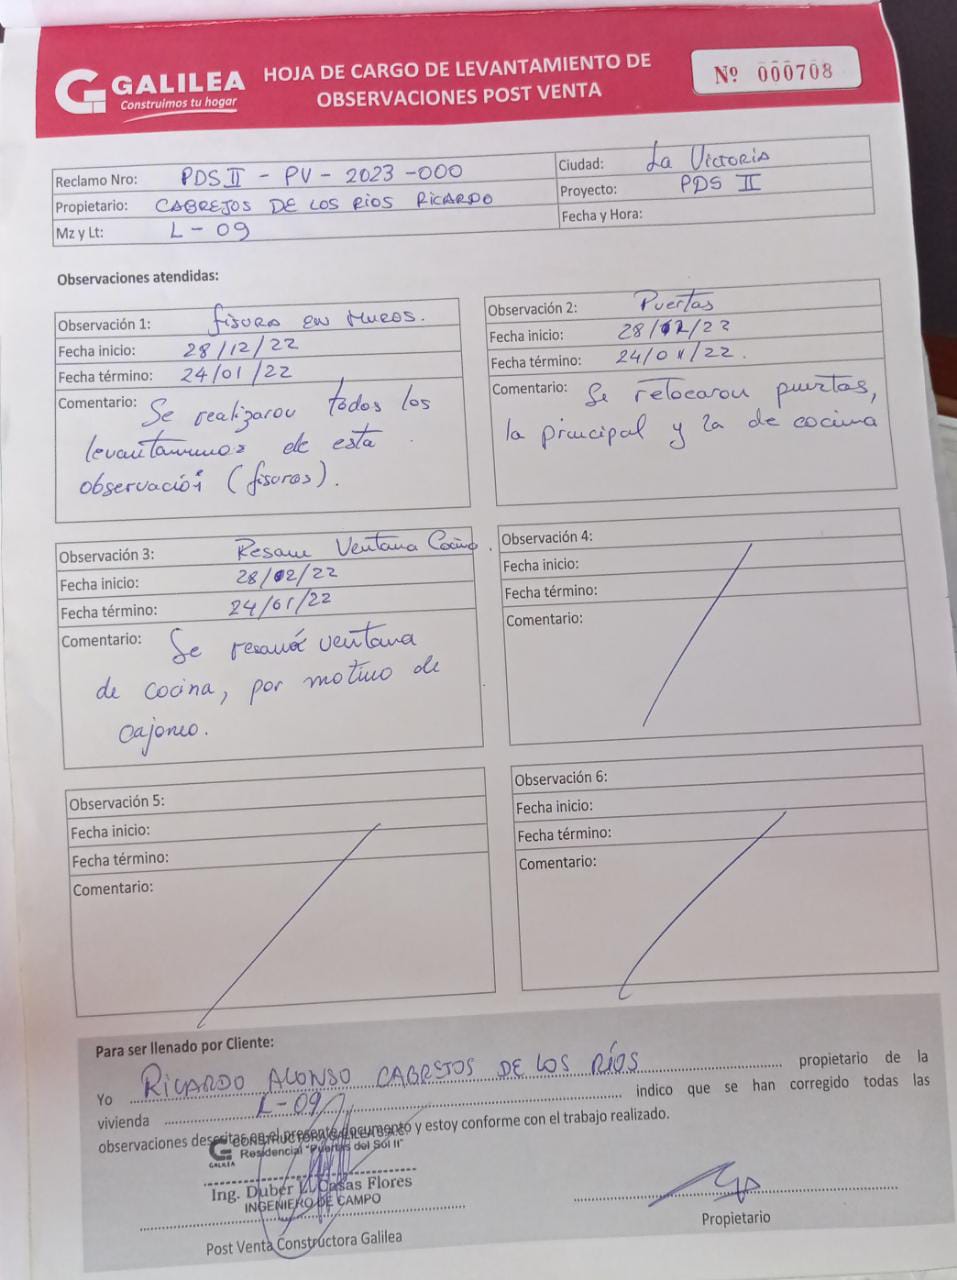 GALILEA
Construimos tu hogar
HOJA DE CARGO DE LEVANTAMIENTO DE
OBSERVACIONES POST VENTA
Nº 000708
Reclamo Nro: PDS II - PV - 2023 -000
Propietario: CABREJOS DE LOS RIOS RICARDO
Mz y Lt: L - 09
Ciudad: La Victoria
Proyecto: PDS II
Fecha y Hora:
Observaciones atendidas:
Observación 1: fisura en Muros.
Fecha inicio: 28/12/22
Fecha término: 24/01/22
Comentario: Se realizarou todos los
levantamunos de esta
observación (fisuras).
Observación 2: Puertas
Fecha inicio: 28/12/22
Fecha término: 24/01/22.
Comentario: Se retocarou puertas,
la principal y la de cocina
Observación 3: Resane Ventana Cocina.
Fecha inicio: 28/02/22
Fecha término: 24/01/22
Comentario: Se resanó ventana
de cocina, por motivo de
cajoneo.
Observación 4:
Fecha inicio:
Fecha término:
Comentario:
Observación 5:
Fecha inicio:
Fecha término:
Comentario:
Observación 6:
Fecha inicio:
Fecha término:
Comentario:
Para ser llenado por Cliente:
Yo RICARDO ALONSO CABREJOS DE LOS RÍOS propietario de la
vivienda L-09 indico que se han corregido todas las
observaciones descritas en el presente documento y estoy conforme con el trabajo realizado.
CONSTRUCTORA GALILEA S.A.C.
GALILEA Residencial "Puertas del Sol II"
Ing. Duber Casas Flores
INGENIERO DE CAMPO
Post Venta Constructora Galilea
Propietario